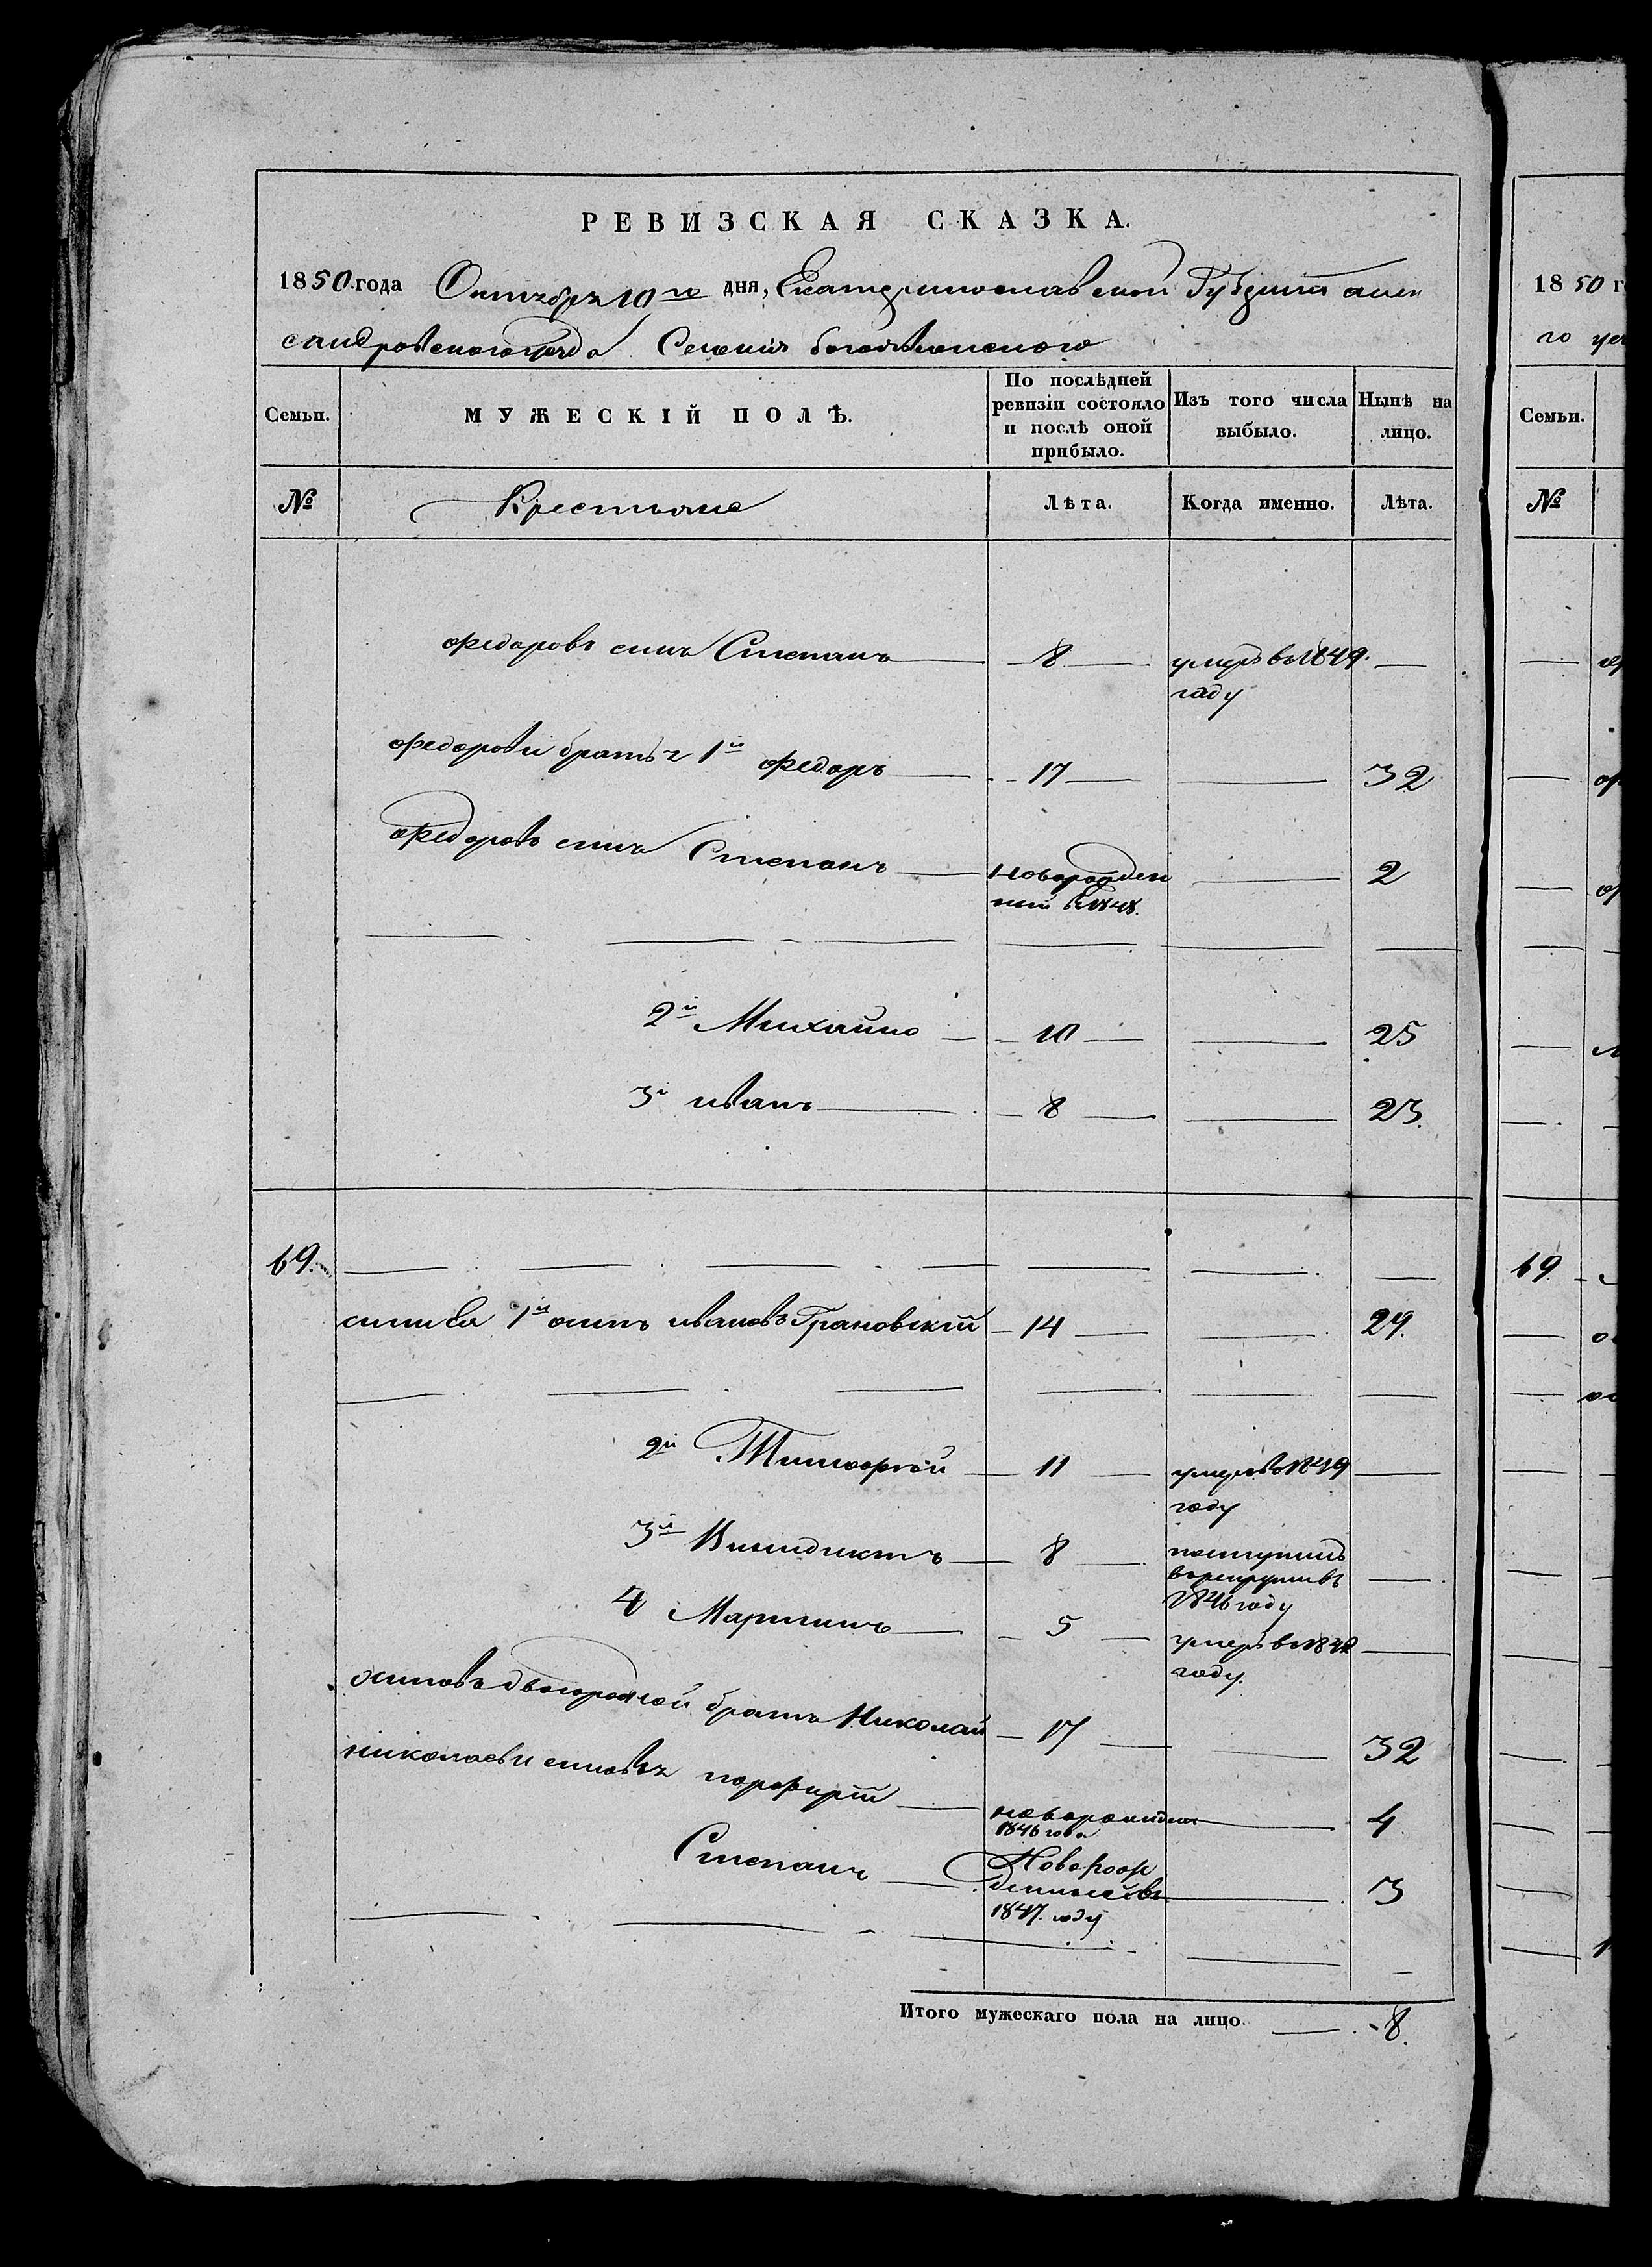 РЕВИЗСКАЯ СКАЗКА.
1850 года Октября 10го дня, Екатеринославской Губернии алек
сандровского уезда Селения богоявленского
Семьи. МУЖЕСКІЙ ПОЛЪ. По послѣдней ревизіи состояло и послѣ оной прибыло. Изъ того числа выбыло. Нынѣ на лицо.
№ Крестьяне Лѣта. Когда именно. Лѣта.
Федоровъ синъ Степанъ 8 умеръ въ 1849.
году
Федорови братья 1й Федоръ 17 32
Федоровъ синъ Степанъ новорожден 2
ний въ 1848.
2й Михайло 10 25
3й иванъ 8 23.
69.
1й осипъ ивановъ Грановскій 14 29.
2й Тимофей 11 умеръ въ 1849
году
3й Винидиктъ 8 поступилъ
в рекруты въ
1846 году
4 Мартинъ 5 умеръ в 184
году.
осиповъ двоюродной братъ Николай 17 32
николаеви синовья порфирій новорожден 4
1846 года
СтепанъНоворож 3
денный въ
1847. году
Итого мужескаго пола на лицо. 8.
1850 г
го уе
Семьи.
№
69